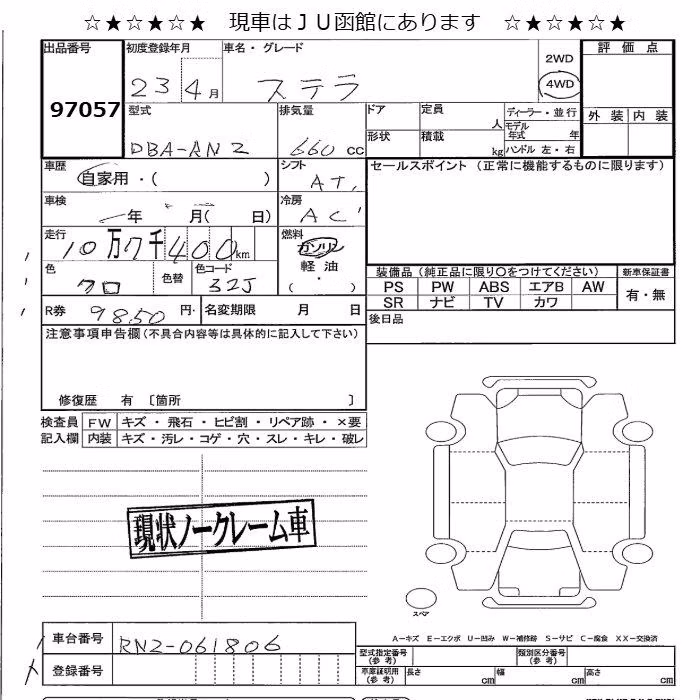 ☆★☆★☆★ 現車はＪＵ函館にあります ☆★☆★☆★
出品番号 初度登録年月 車名・グレード 2WD 評価点
97057 23 4月 ステラ 4WD
型式 排気量 ドア 定員 人 ディーラー・並行 外装 内装
DBA-RN2 660 cc 形状 積載 kg モデル年式 年
ハンドル 左・右
車歴 シフト セールスポイント (正常に機能するものに限ります)
自家用・( ) AT
車検 冷房
年 月( 日) AC
走行 燃料
10万7千400km ガソリン
色 色替 色コード 軽油
クロ 32J ( ・ )
装備品 (純正品に限り○をつけてください) 新車保証書
PS PW ABS エアB AW 有・無
SR ナビ TV カワ
R券 9850 円 名変期限 月 日 後日品
注意事項申告欄(不具合内容等は具体的に記入して下さい)
修復歴 有 〔箇所 〕
検査員 FW キズ・飛石・ヒビ割・リペア跡・×要
記入欄 内装 キズ・汚レ・コゲ・穴・スレ・キレ・破レ
現状ノークレーム車
スペア
車台番号 RN2-061806
A－キズ E－エクボ U－凹み W－補修跡 S－サビ C－腐食 XX－交換済
型式指定番号(参考) 類別区分番号(参考)
登録番号 車庫証明用(参考) 長さ cm 幅 cm 高さ cm